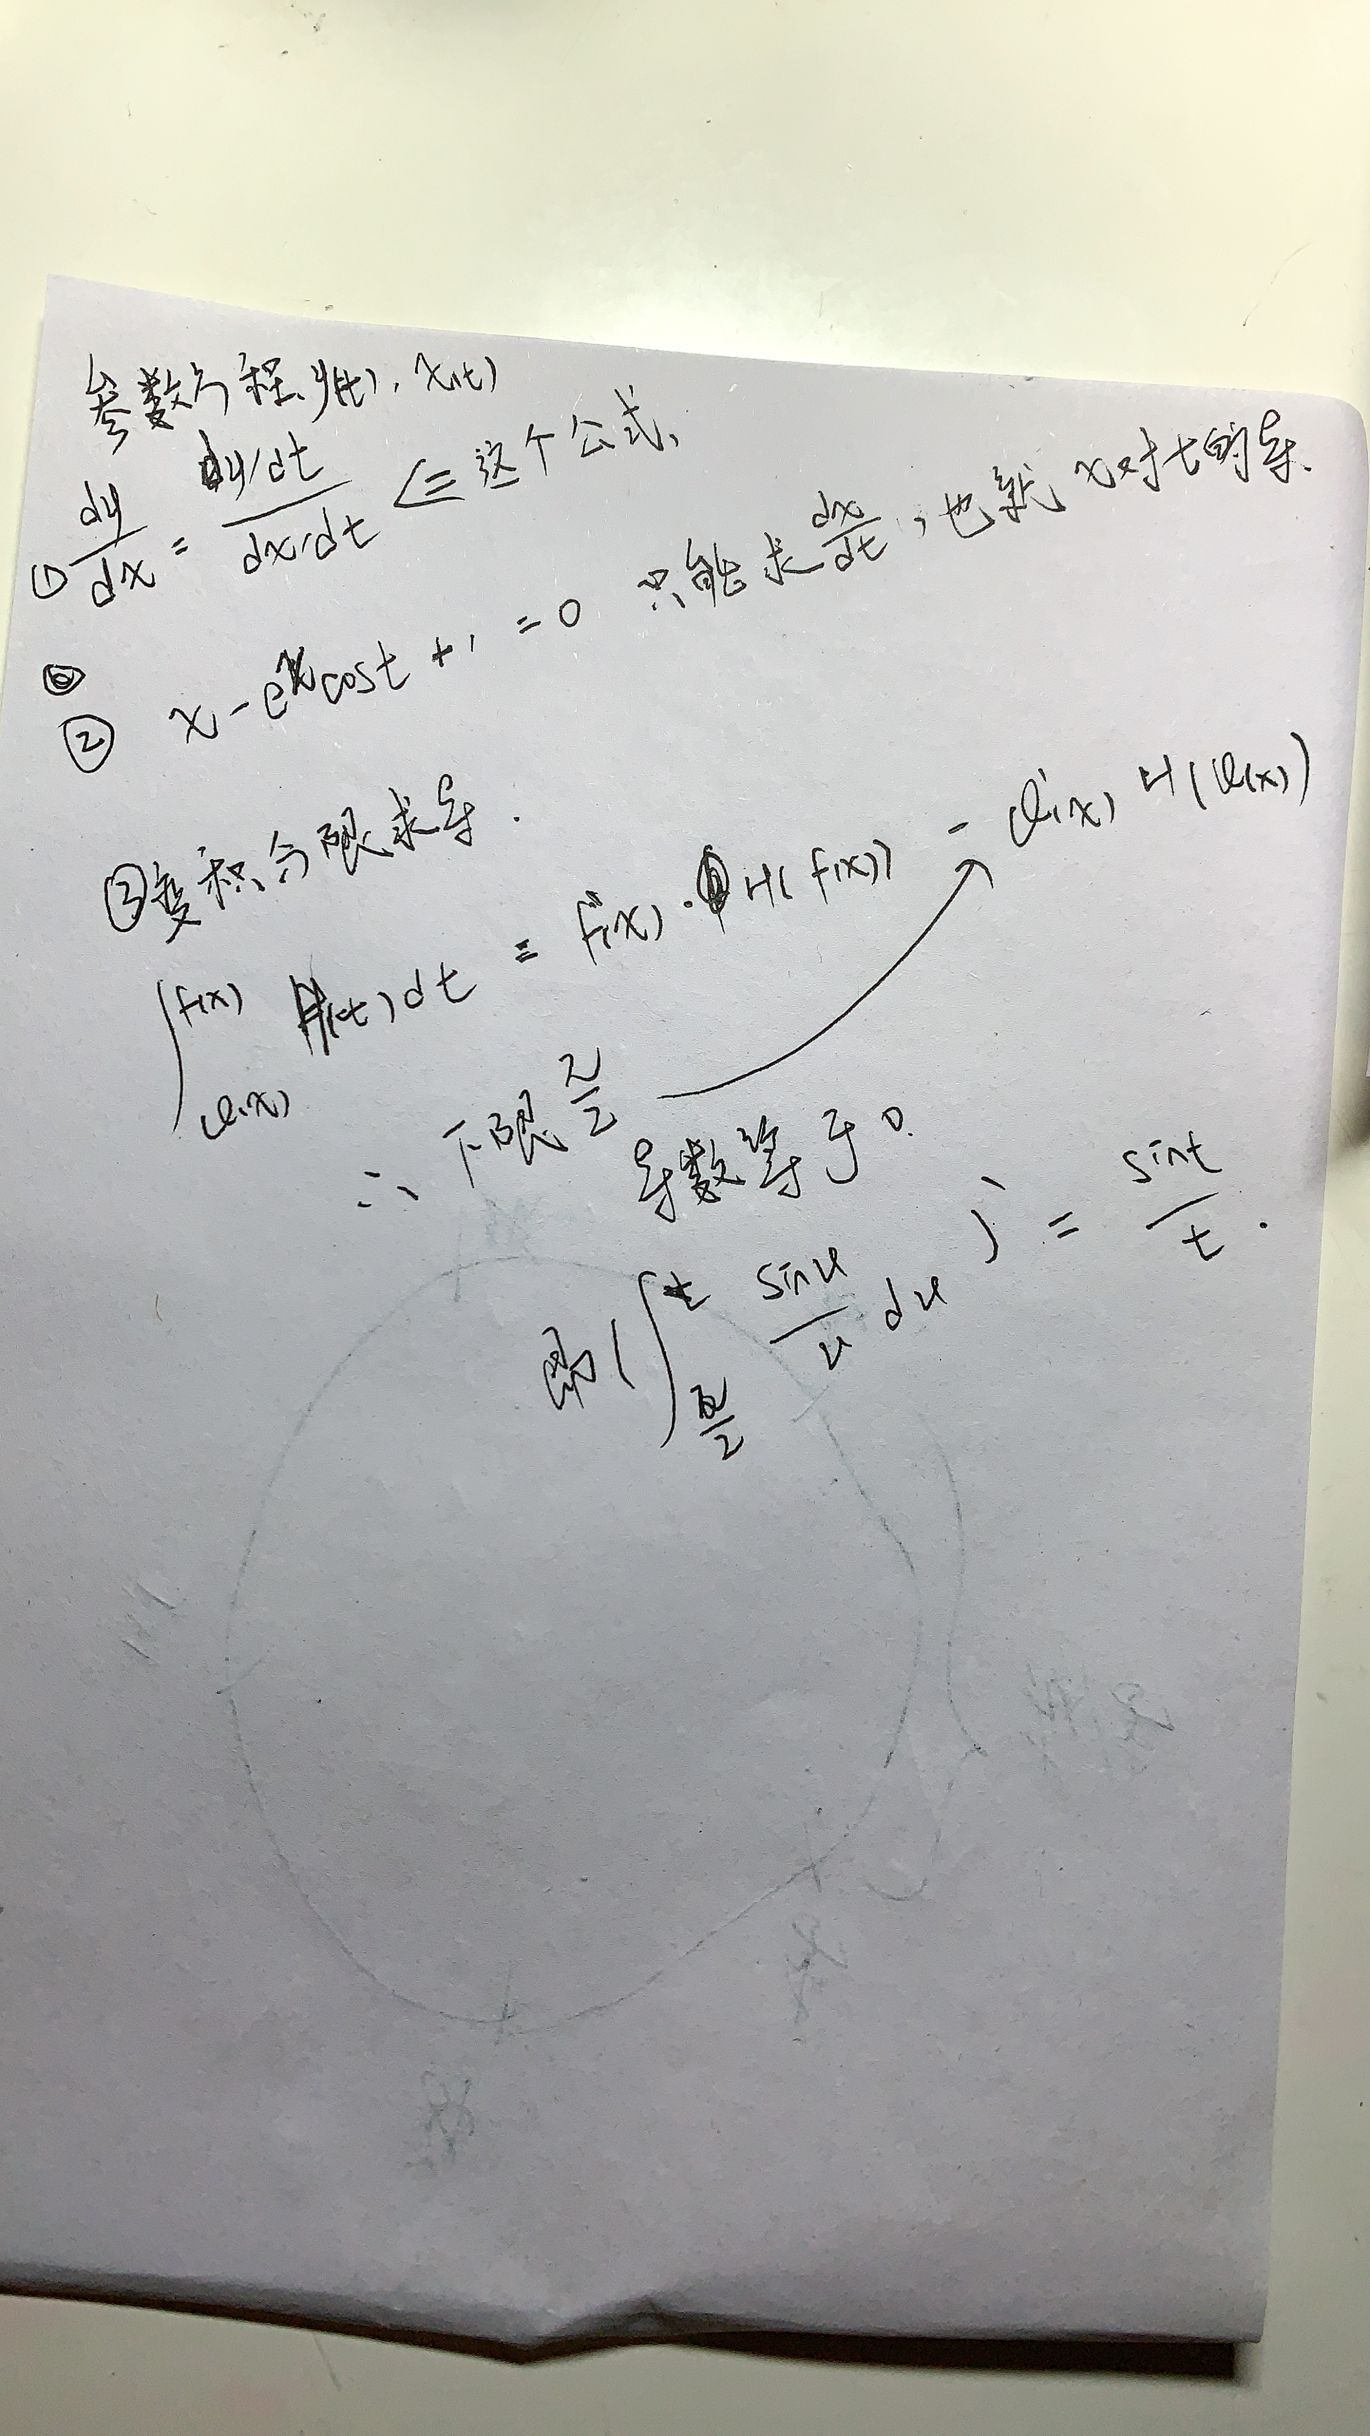 参数方程、y(t), x(t)
① dy/dx = (dy/dt)/(dx/dt) ⇐ 这个公式、
② x - e^x cost + 1 = 0 只能求 dx/dt，也就 x对t的导.
③变积分限求导.
∫_{φ(x)}^{f(x)} H(t)dt = f'(x)·H(f(x)) - φ'(x)H(φ(x))
∴ 下限 π/2
导数等于0.
即(∫_{π/2}^{t} sinu/u du)' = sint/t.